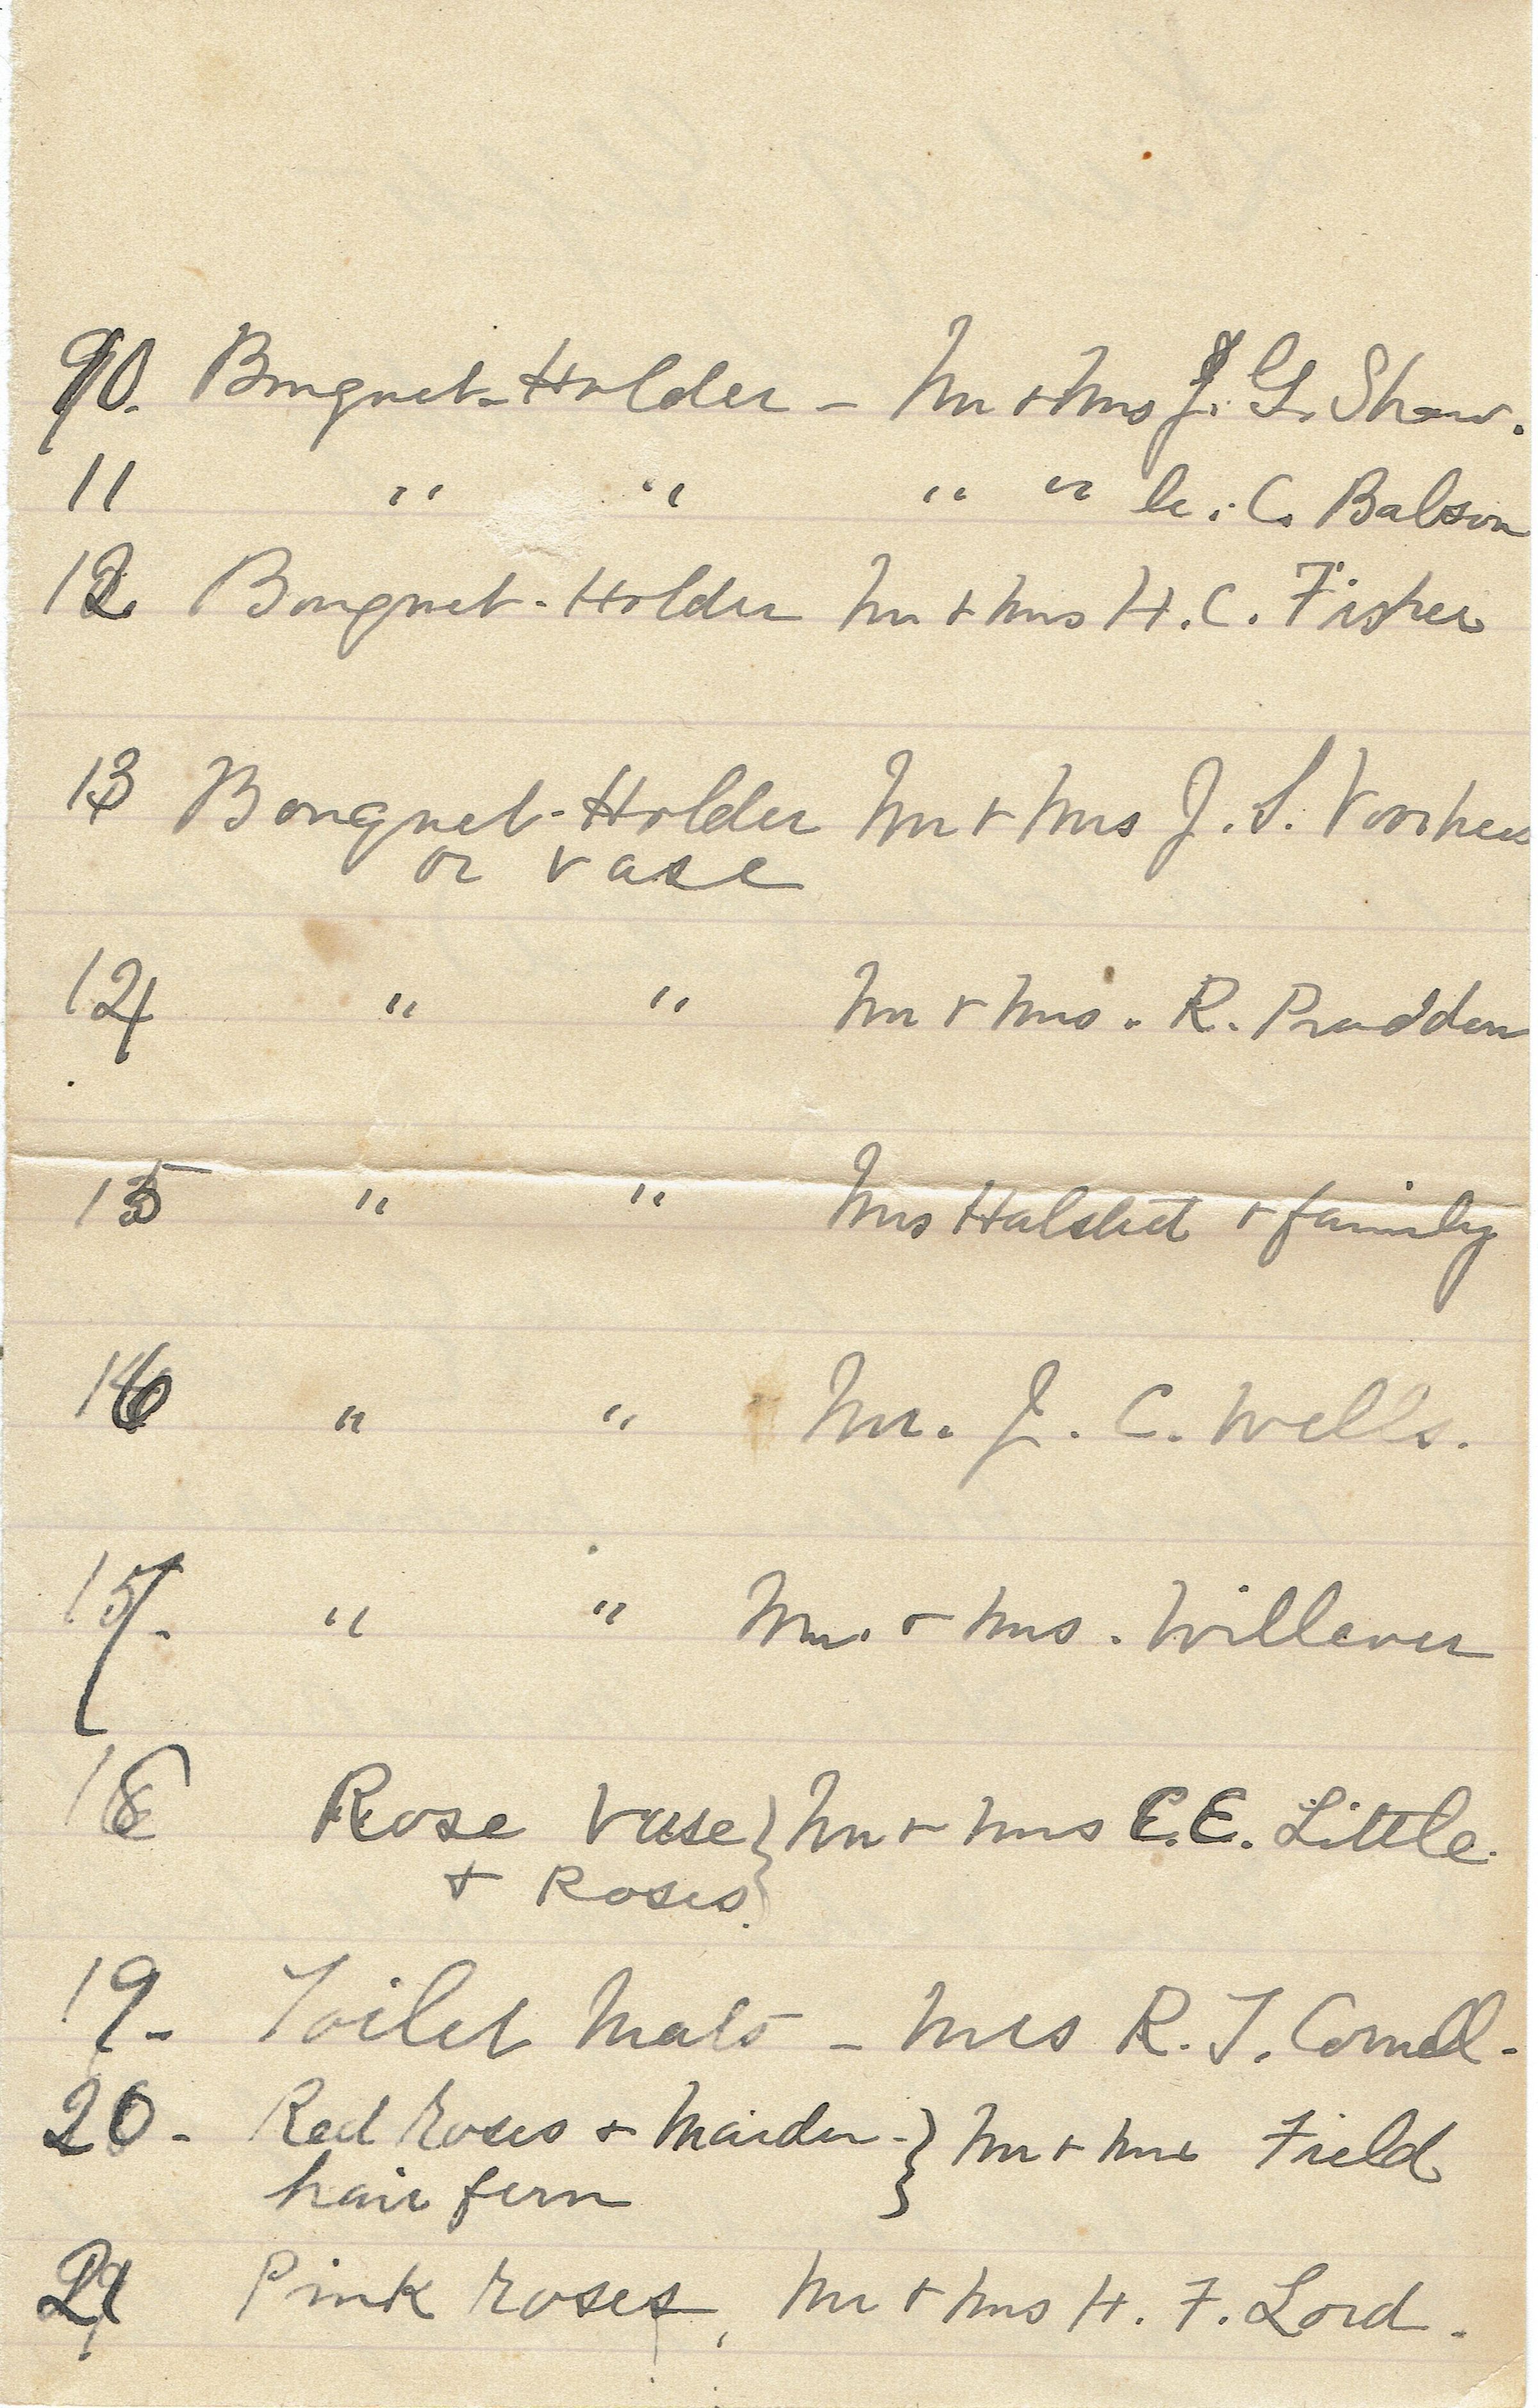 10. Bouquet-Holder - Mr + Mrs J. G. Shaw.
11 " " " " C. Babson
12 Bouquet-Holder Mr + Mrs H. C. Fisher
13 Bouquet-Holder Mr + Mrs J. S. Voorhees
or vase
14 " " Mr + Mrs. R. Prudden
15 " " Mrs Halsted + family
16 " " Mr. J. C. Wells.
17. " " Mr. + Mrs. Willever
18 Rose Vase } Mr + Mrs E.E. Little.
+ Roses.
19. Toilet Mats - Mrs R. T. Cornell.
20 - Red Roses + Maiden - } Mr + Mrs Field
hair fern
21 Pink Roses, Mr + Mrs H. F. Lord.